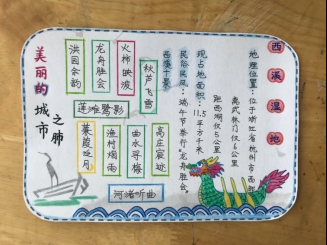 西溪湿地
地理位置：位于浙江省杭州市西部
离武林门仅6公里
距西湖仅5公里
现占地面积：11.5平方千米
民俗民风：端午节举行"龙舟胜会"
西溪十景
秋芦飞雪
火柿映波
龙舟胜会
洪园余韵
莲滩鹭影
高庄宸迹
曲水寻梅
渔村烟雨
蒹葭泛月
河渚听曲
美丽的
城市
之肺